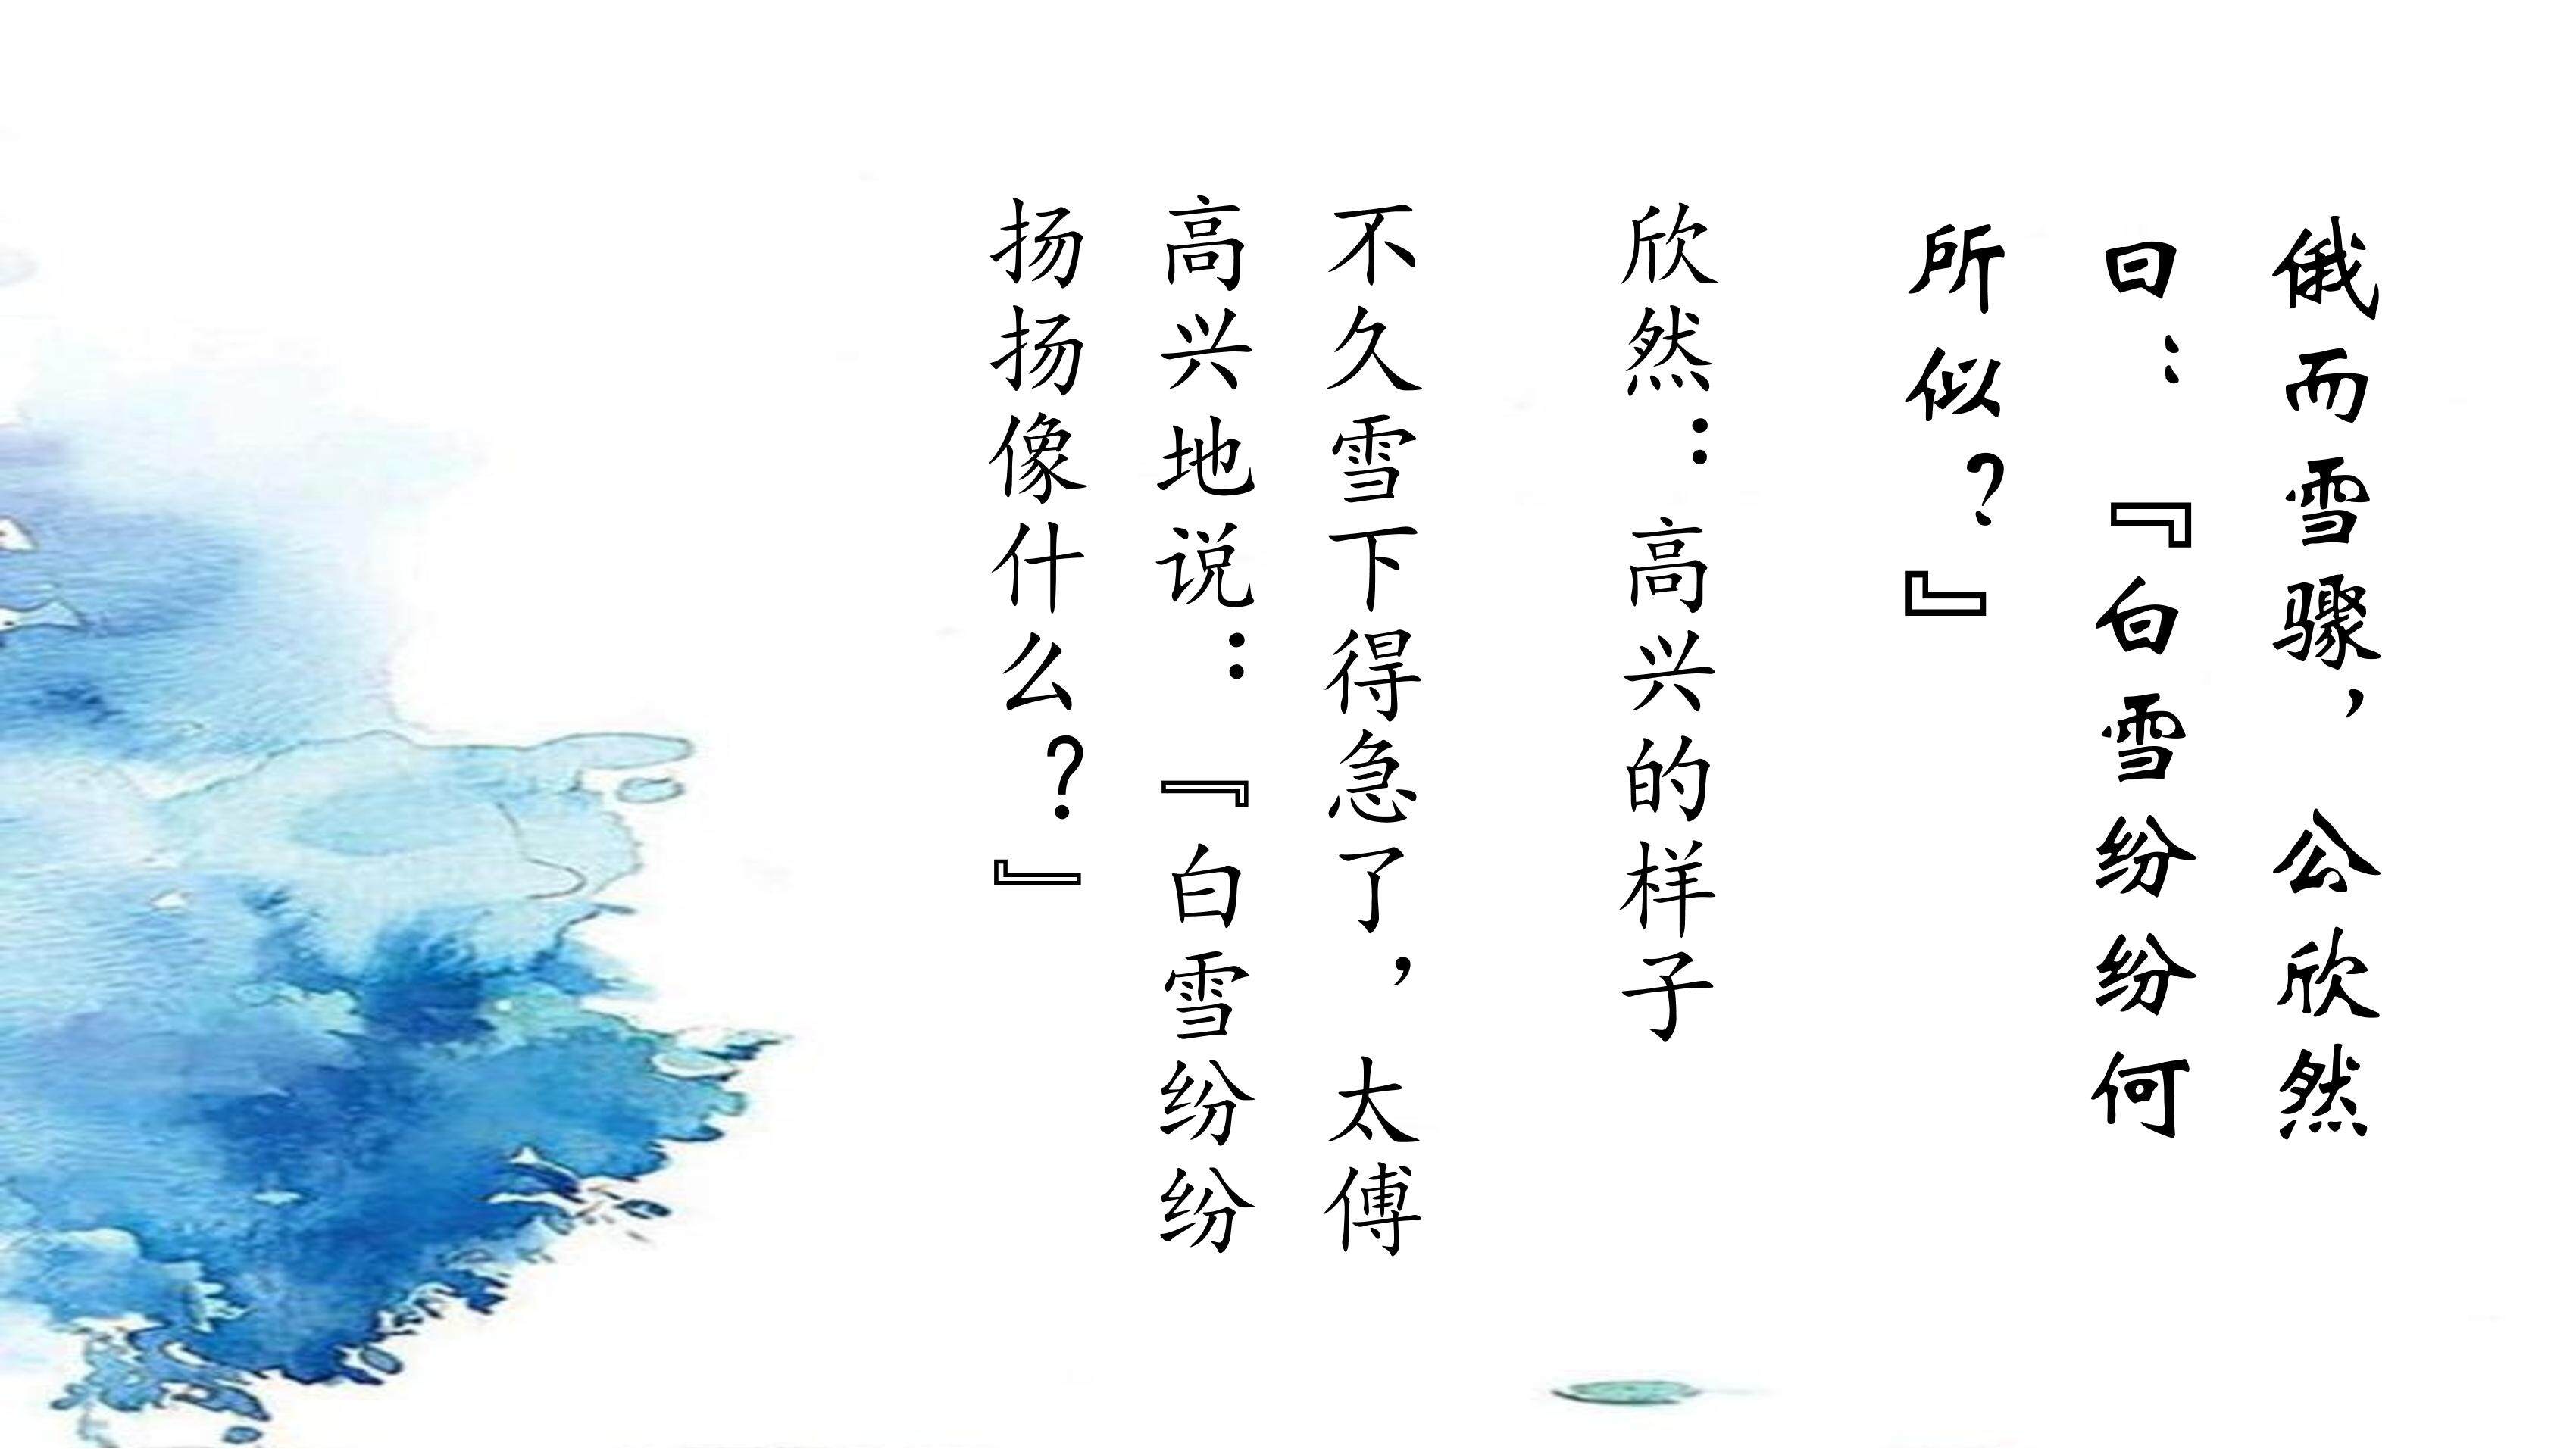 俄而雪骤，公欣然
曰：『白雪纷纷何
所似？』
欣然：高兴的样子
不久雪下得急了，太傅
高兴地说：『白雪纷纷
扬扬像什么？』